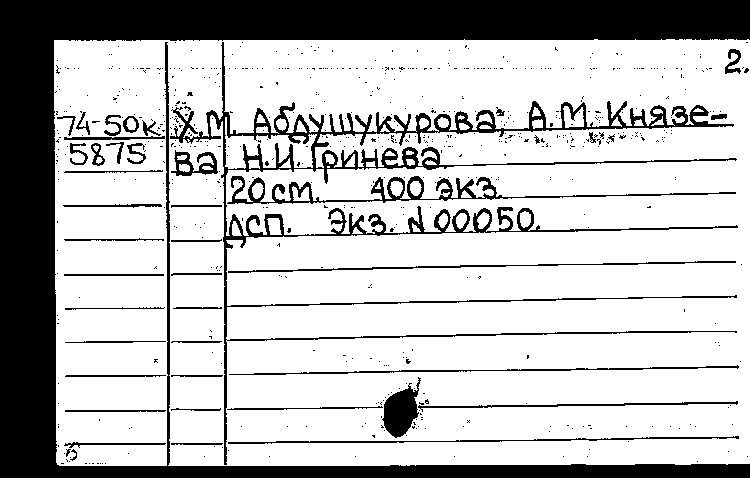 2.
74-50к Х.М. Абдушукурова, А.М. Князе-
5875 ва, Н.И. Гринева
20 см. 400 экз.
ДСП. Экз. № 00050.
б